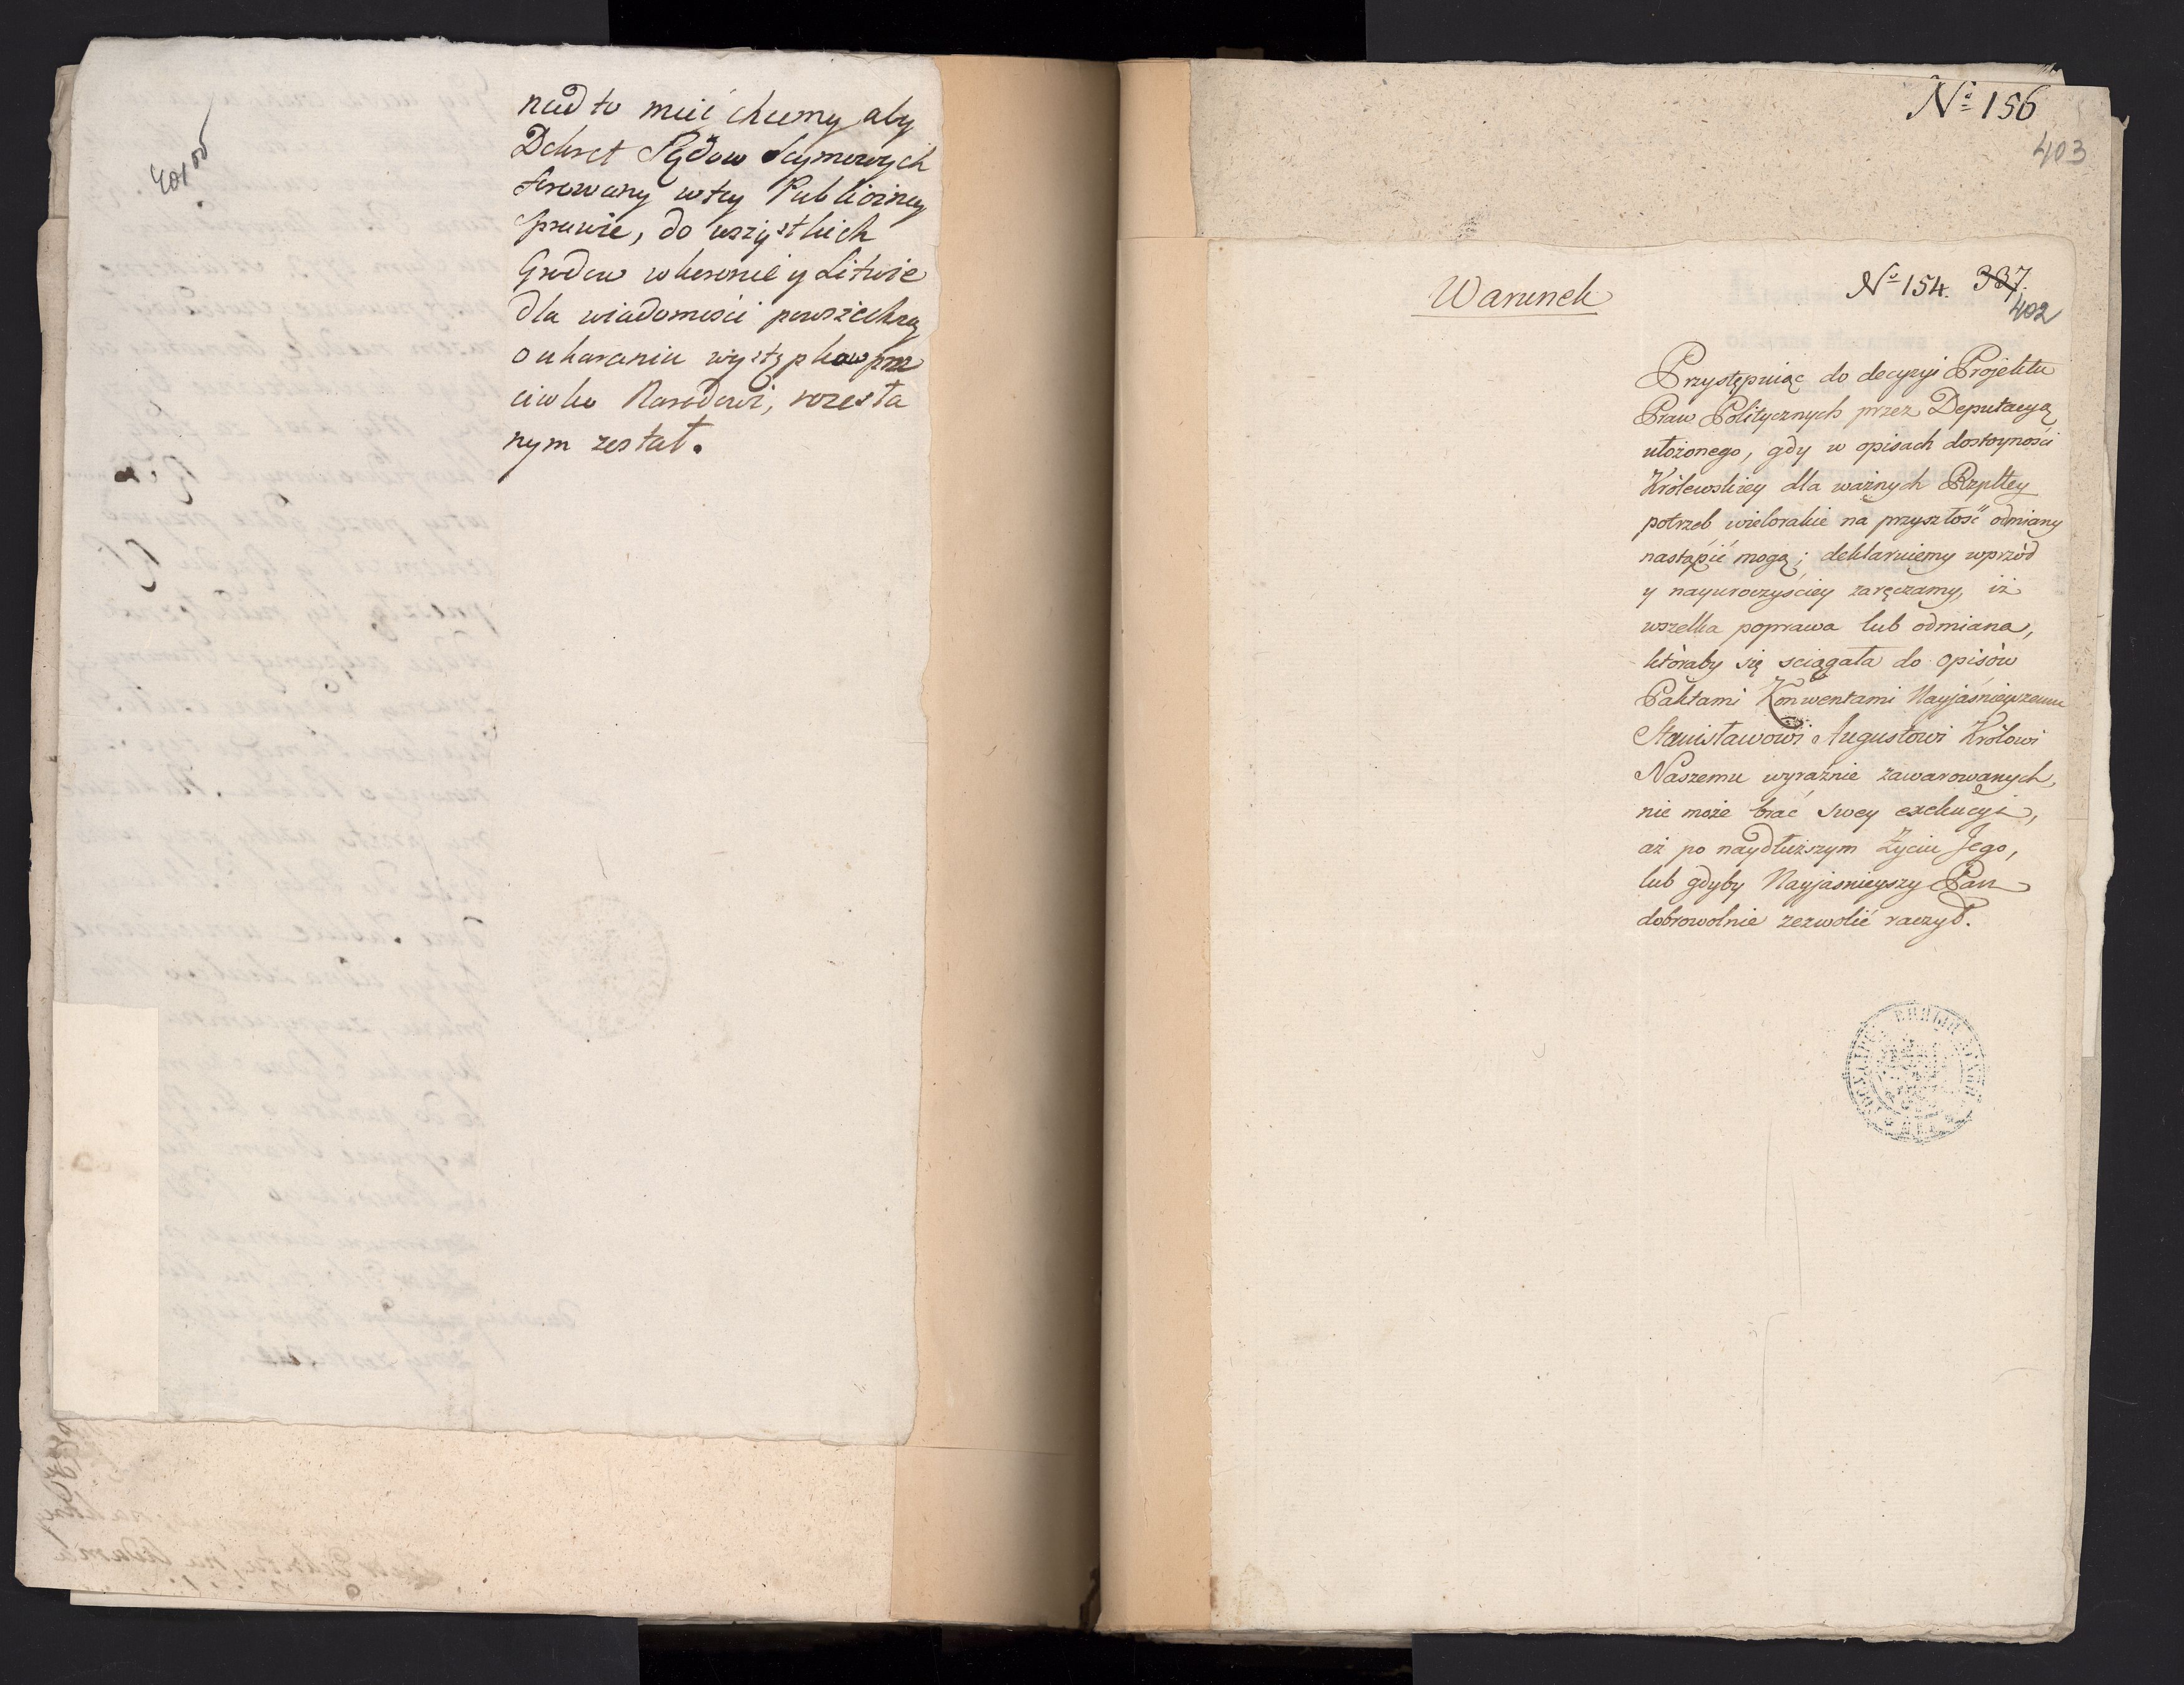 401
nad to mieć chcemy aby
Dekret Sądow Seymowych
ferowany w tey Publiczney
sprawie, do wszystkich
Grodow w koronie y Litwie
dla wiadomości powszechney
o ukaraniu występkow prze
ciwko Narodowi, rozesła
nym został.
Nº 156
403
Warunek
Nº 154. 337.
402
Przystępuiąc do decyzyi Projektu
Praw Politycznych przez Deputacyą
ułożonego, gdy w opisach dostoyności
Królewskiey dla ważnych Rzpltey
potrzeb wielorakie na przyszłość odmiany
nastąpić mogą; deklaruiemy wprzód
y nayuroczyściey zaręczamy, iż
wszelka poprawa lub odmiana,
któraby się sciągała do opisów
Paktami Konwentami Nayjaśnieyszemu
Stanisławowi Augustowi Królowi
Naszemu wyraźnie zawarowanych,
nie może brać swey exekucyi,
aż po naydłuższym życiu Jego,
lub gdyby Nayjasnieyszy Pan
dobrowolnie zezwolić raczył.